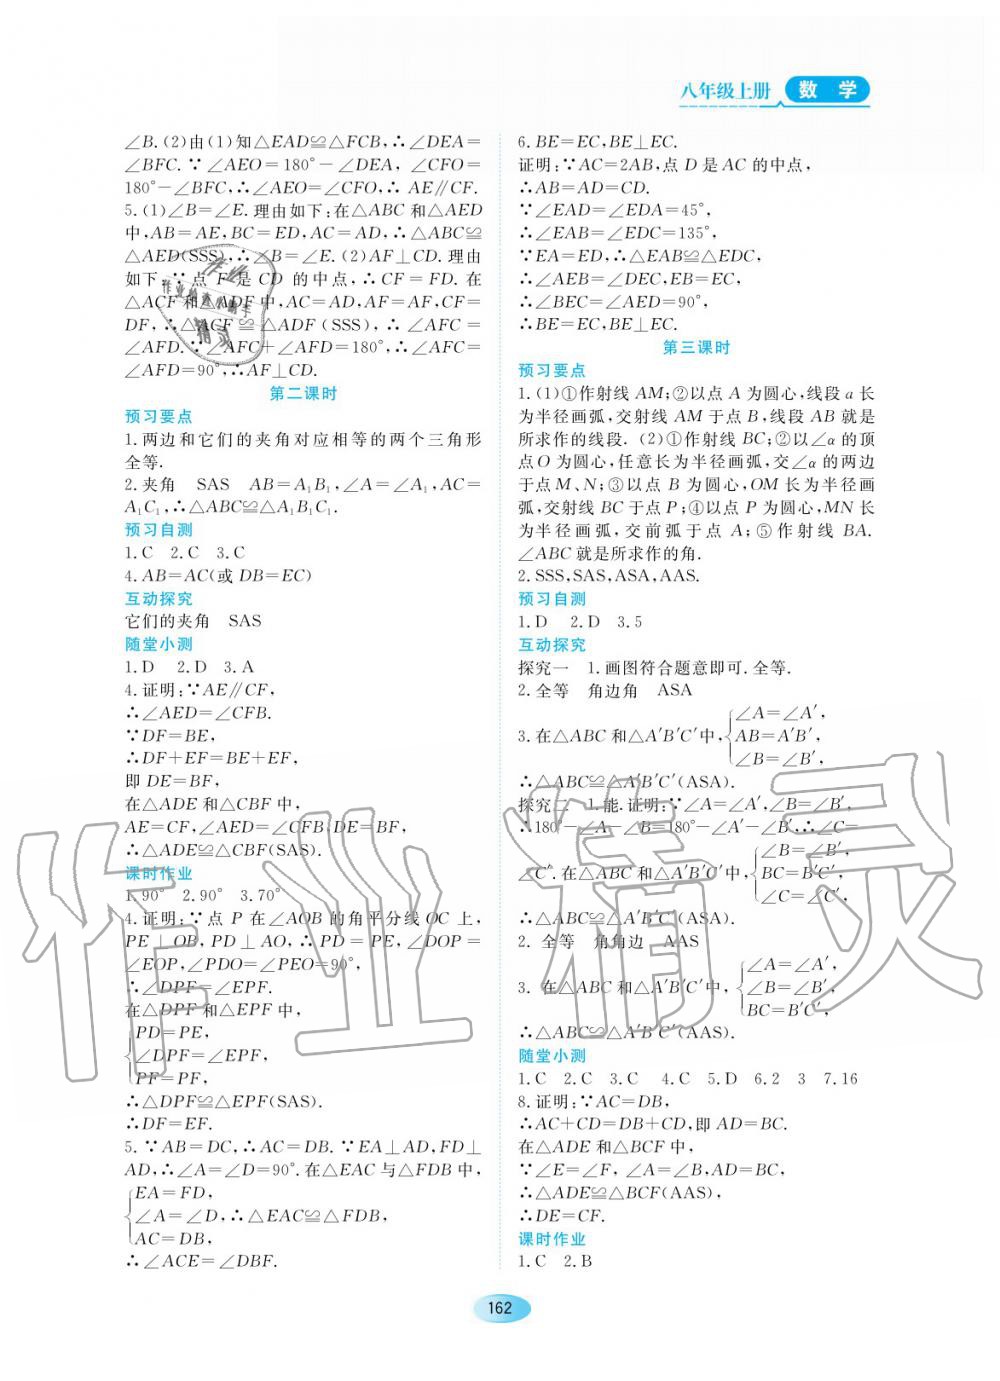 八年级上册 数学
∠B.(2)由(1)知△EAD≌△FCB,∴∠DEA=
∠BFC.∵∠AEO=180°-∠DEA,∠CFO=
180°-∠BFC,∴∠AEO=∠CFO,∴AE∥CF.
5.(1)∠B=∠E.理由如下:在△ABC和△AED
中,AB=AE,BC=ED,AC=AD,∴△ABC≌
△AED(SSS),∴∠B=∠E.(2)AF⊥CD.理由
如下:∵点F是CD的中点,∴CF=FD.在
△ACF和△ADF中,AC=AD,AF=AF,CF=
DF,∴△ACF≌△ADF(SSS),∴∠AFC=
∠AFD.∵∠AFC+∠AFD=180°,∴∠AFC=
∠AFD=90°,∴AF⊥CD.
第二课时
预习要点
1.两边和它们的夹角对应相等的两个三角形
全等.
2.夹角 SAS AB=A₁B₁,∠A=∠A₁,AC=
A₁C₁,∴△ABC≌△A₁B₁C₁.
预习自测
1.C 2.C 3.C
4.AB=AC(或DB=EC)
互动探究
它们的夹角 SAS
随堂小测
1.D 2.D 3.A
4.证明:∵AE∥CF,
∴∠AED=∠CFB.
∵DF=BE,
∴DF+EF=BE+EF,
即DE=BF,
在△ADE和△CBF中,
AE=CF,∠AED=∠CFB,DE=BF,
∴△ADE≌△CBF(SAS).
课时作业
1.90° 2.90° 3.70°
4.证明:∵点P在∠AOB的角平分线OC上,
PE⊥OB,PD⊥AO,∴PD=PE,∠DOP=
∠EOP,∠PDO=∠PEO=90°,
∴∠DPF=∠EPF.
在△DPF和△EPF中,
PD=PE,
∠DPF=∠EPF,
PF=PF,
∴△DPF≌△EPF(SAS).
∴DF=EF.
5.∵AB=DC,∴AC=DB.∵EA⊥AD,FD⊥
AD,∴∠A=∠D=90°.在△EAC与△FDB中,
EA=FD,
∠A=∠D,∴△EAC≌△FDB,
AC=DB,
∴∠ACE=∠DBF.
6.BE=EC,BE⊥EC.
证明:∵AC=2AB,点D是AC的中点,
∴AB=AD=CD.
∵∠EAD=∠EDA=45°,
∴∠EAB=∠EDC=135°,
∵EA=ED,∴△EAB≌△EDC,
∴∠AEB=∠DEC,EB=EC,
∴∠BEC=∠AED=90°,
∴BE=EC,BE⊥EC.
第三课时
预习要点
1.(1)①作射线AM;②以点A为圆心,线段a长
为半径画弧,交射线AM于点B,线段AB就是
所求作的线段.(2)①作射线BC;②以∠α的顶
点O为圆心,任意长为半径画弧,交∠α的两边
于点M、N;③以点B为圆心,OM长为半径画
弧,交射线BC于点P;④以点P为圆心,MN长
为半径画弧,交前弧于点A;⑤作射线BA.
∠ABC就是所求作的角.
2.SSS,SAS,ASA,AAS.
预习自测
1.D 2.D 3.5
互动探究
探究一 1.画图符合题意即可.全等.
2.全等 角边角 ASA
∠A=∠A′,
3.在△ABC和△A′B′C′中,AB=A′B′,
∠B=∠B′,
∴△ABC≌△A′B′C′(ASA).
探究二 1.能.证明:∵∠A=∠A′,∠B=∠B′,
∴180°-∠A-∠B=180°-∠A′-∠B′,∴∠C=
∠B=∠B′,
∠C′.在△ABC和△A′B′C′中,BC=B′C′,
∠C=∠C′,
∴△ABC≌△A′B′C′(ASA).
2.全等 角角边 AAS
∠A=∠A′,
3.在△ABC和△A′B′C′中,∠B=∠B′,
BC=B′C′,
∴△ABC≌△A′B′C′(AAS).
随堂小测
1.C 2.C 3.C 4.C 5.D 6.2 3 7.16
8.证明:∵AC=DB,
∴AC+CD=DB+CD,即AD=BC.
在△ADE和△BCF中,
∵∠E=∠F,∠A=∠B,AD=BC,
∴△ADE≌△BCF(AAS),
∴DE=CF.
课时作业
1.C 2.B
162
作业精灵